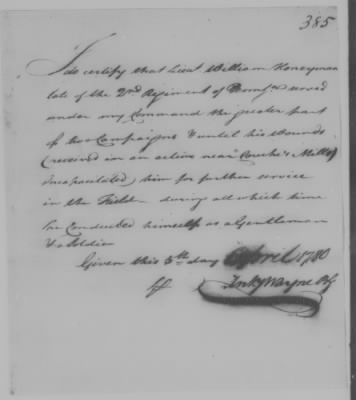 385
I do certify that Lieut William Honeyman
late of the 2nd Regiment of served
under my Command the greater part
of two Campaigns & until his Wounds
(received in an action near Mills)
incapacitated) him for further service
in the Field during all which time
he Conducted himself as a Gentleman
& a Soldier
Given this 5th day April 1780
Anty Wayne BG